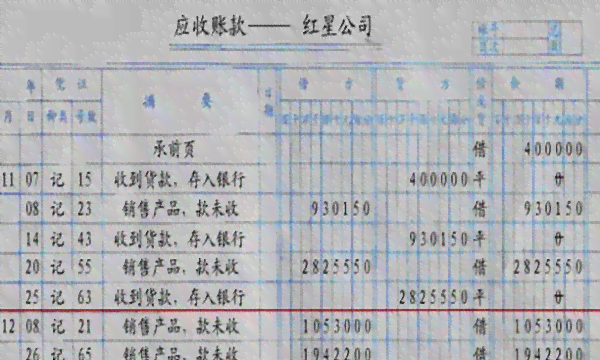 应收账款—— 红星公司
年 凭证 摘要 日期 借方 贷方 余额
月 日 种类 号数
承前页 借 400000
11 07 记 15 收到货款,存入银行 400000 平 0
08 记 23 销售产品,款未收 930150 借 930150
14 记 43 收到货款,存入银行 930150 平 0
20 记 55 销售产品,款未收 2825550 借 2825550
25 记 63 收到货款,存入银行 2825550 平 0
12 08 记 21 销售产品,款未收 1053000 借 1053000
26 记 65 销售产品,款未收 1942200 借 1942200